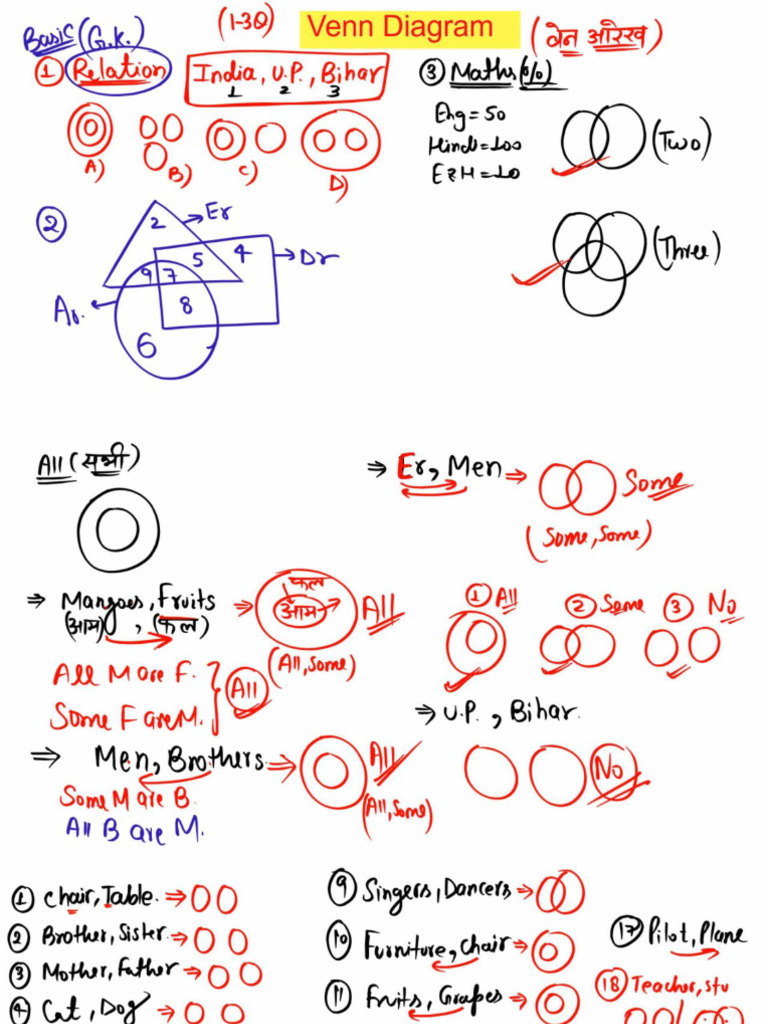 Basic (G.K.)
(1-3Q)
Venn Diagram
(वेन आरेख)
① Relation
India, U.P., Bihar
1 2 3
A) B) C) D)
③ Maths (%)
Eng = 50
Hindi = 100
E & H = 10
(Two)
(Three)
②
Er
2
5
4
Dr
9
7
8
Ar.
6
All (सभी)
⇒ Er, Men ⇒
Some
(Some, Some)
⇒ Mangoes, Fruits ⇒
(आम), (फल)
फल
आम
All
(All, Some)
All M are F.
Some F are M.
All
① All
② Some
③ No
⇒ U.P., Bihar
No
⇒ Men, Brothers ⇒
All
(All, Some)
Some M are B.
All B are M.
① Chair, Table ⇒
② Brother, Sister →
③ Mother, Father ⇒
④ Cat, Dog ⇒
⑨ Singers, Dancers ⇒
⑩ Furniture, Chair ⇒
⑪ Fruits, Grapes ⇒
⑰ Pilot, Plane
⑱ Teacher, Stu